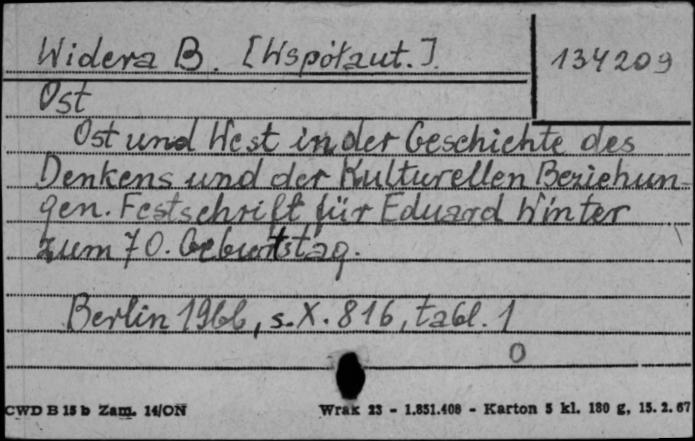 Widera B. [Współaut.]
134209
Ost
Ost und West in der Geschichte des
Denkens und der Kulturellen Beziehun-
gen. Festschrift für Eduard Winter
zum 70. Geburtstag.
Berlin 1966, s. X. 816, tabl. 1
0
CWD B 15 b Zam. 14/ON
Wrak 23 - 1.851.408 - Karton 5 kl. 180 g, 15. 2. 67